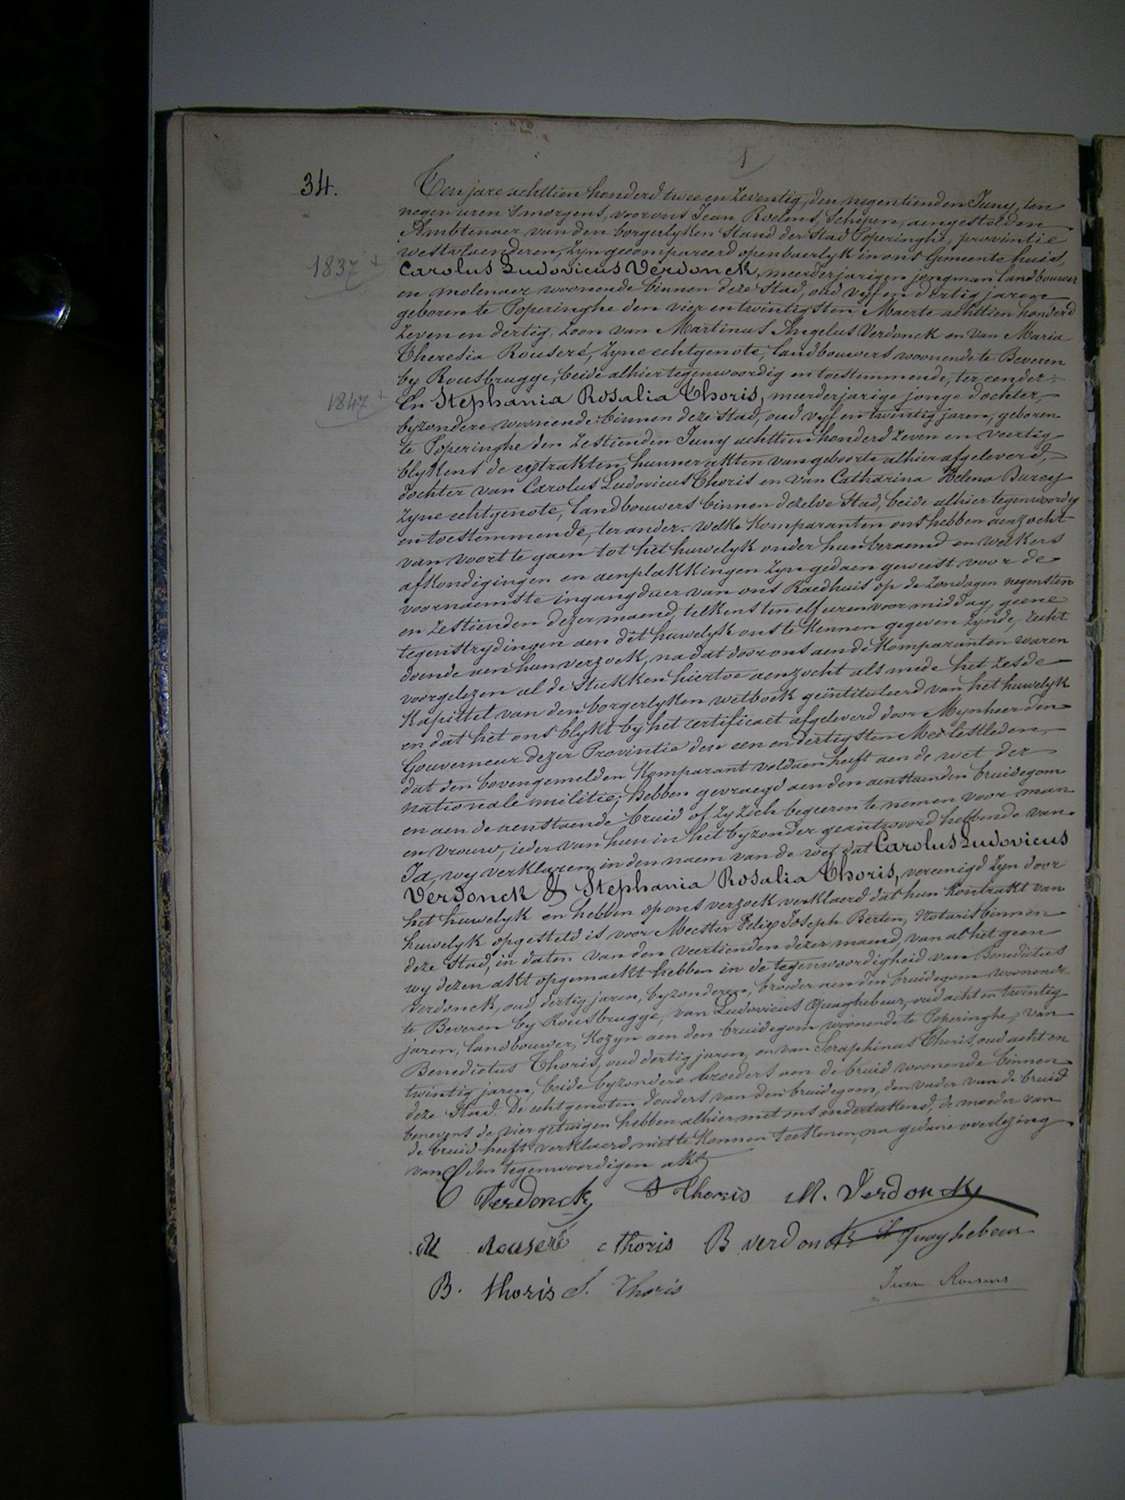 1
34.
Ten jare achttien honderd twee en zeventig, den negentienden Juny, ten
negen uren 's morgens, voor ons Jean Roelens, Schepen, aengestelden
Ambtenaer van den borgerlyken Stand der Stad Poperinghe, provintie
westvlaenderen, zyn gecompareerd openbaerlyk in ons Gemeente huis,
1837 + Carolus Ludovicus Verdonck, meerderjarigen jongman landbouwer
en molenaer woonende binnen deze Stad, oud vyf en dertig jaren
geboren te Poperinghe den vier en twintigsten Maerte achttien honderd
zeven en dertig, zoon van Martinus Angelus Verdonck en van Maria
Theresia Rouseré, zyne echtgenote, landbouwers woonende te Beveren
by Rousbrugge, beide alhier tegenwoordig en toestemmende, ter eender
1847 + En Stephania Rosalia Thoris, meerderjarige jonge dochter,
byzondere woonende binnen deze Stad, oud vyf en twintig jaren, geboren
te Poperinghe den zestienden Juny achttien honderd zeven en veertig
blykens de extrakten hunner akten van geboorte alhier afgeleverd,
dochter van Carolus Ludovicus Thoris en van Catharina
zyne echtgenote, landbouwers binnen dezelve Stad, beide alhier tegenwoordig
en toestemmende, ter ander. Welke Komparanten ons hebben aenzocht
van voort te gaen tot het huwelyk onder hun beraemd en welkers
afkondigingen en aenplakkingen zyn gedaen geweest voor de
voornaemste ingangdeur van ons Raedhuis op de zondagen negensten
en zestienden dezer maend, telkens ten elf uren voormiddag, geene
tegenstrydingen aen dit huwelyk ons te kennen gegeven zynde, recht
doende aen hun verzoek, na dat door ons aen de Komparanten waren
voorgelezen al de Stukken hiertoe aenzocht als mede het zesde
Kapittel van den borgerlyken wetboek geïntituleerd van het huwelyk
en dat het ons blykt by het certificaet afgeleverd door Mynheer den
Gouverneur dezer Provintie den een en dertigsten Mei lestleden,
dat den bovengemelden Komparant voldaen heeft aen de wet der
nationale militie; Hebben gevraegd aen den aenstaenden bruidegom
en aen de aenstaende bruid of zy zich begeeren te nemen voor man
en vrouw, ieder van hun in het byzonder geantwoord hebbende van
Ja, wy verklaren in den naem van de wet dat Carolus Ludovicus
Verdonck & Stephania Rosalia Thoris, vereenigd zyn door
het huwelyk en hebben op ons verzoek verklaerd dat hun kontrakt van
huwelyk opgesteld is voor Meester Felix Joseph Berten, Notaris binnen
deze Stad, in daten van den veertienden dezer maend, van al het geen
wy dezen akt opgemaekt hebben in de tegenwoordigheid van Benedictus
Verdonck, oud dertig jaren, byzonderen, broeder aen den bruidegom woonende
te Beveren by Rousbrugge, van Ludovicus Quaghebeur, oud acht en twintig
jaren, landbouwer, Kozyn aen den bruidegom woonende te Poperinghe, van
Benedictus Thoris, oud dertig jaren, en van Seraphinus Thoris, oud acht en
twintig jaren, beide byzondere broeders aen de bruid woonende binnen
deze Stad. De echtgenoten, d'ouders van den bruidegom, den vader van de bruid
benevens de vier getuigen hebben alhier met ons onderteekend, de moeder van
de bruid heeft verklaerd niet te kennen teekenen na gedane overlezing
van den tegenwoordigen akt
C Verdonck S Thoris M. Verdonck
M Rouseré C thoris B verdonck L Quaghebeur
B. thoris S. Thoris Jean Roelens